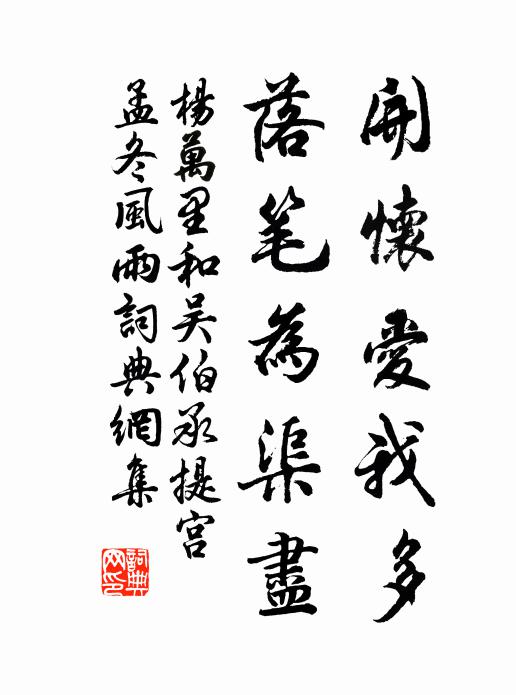 開懷愛我多
落笔為渠盡
楊萬里和吴伯承提宫
孟冬風雨詞典網集
詞典网印